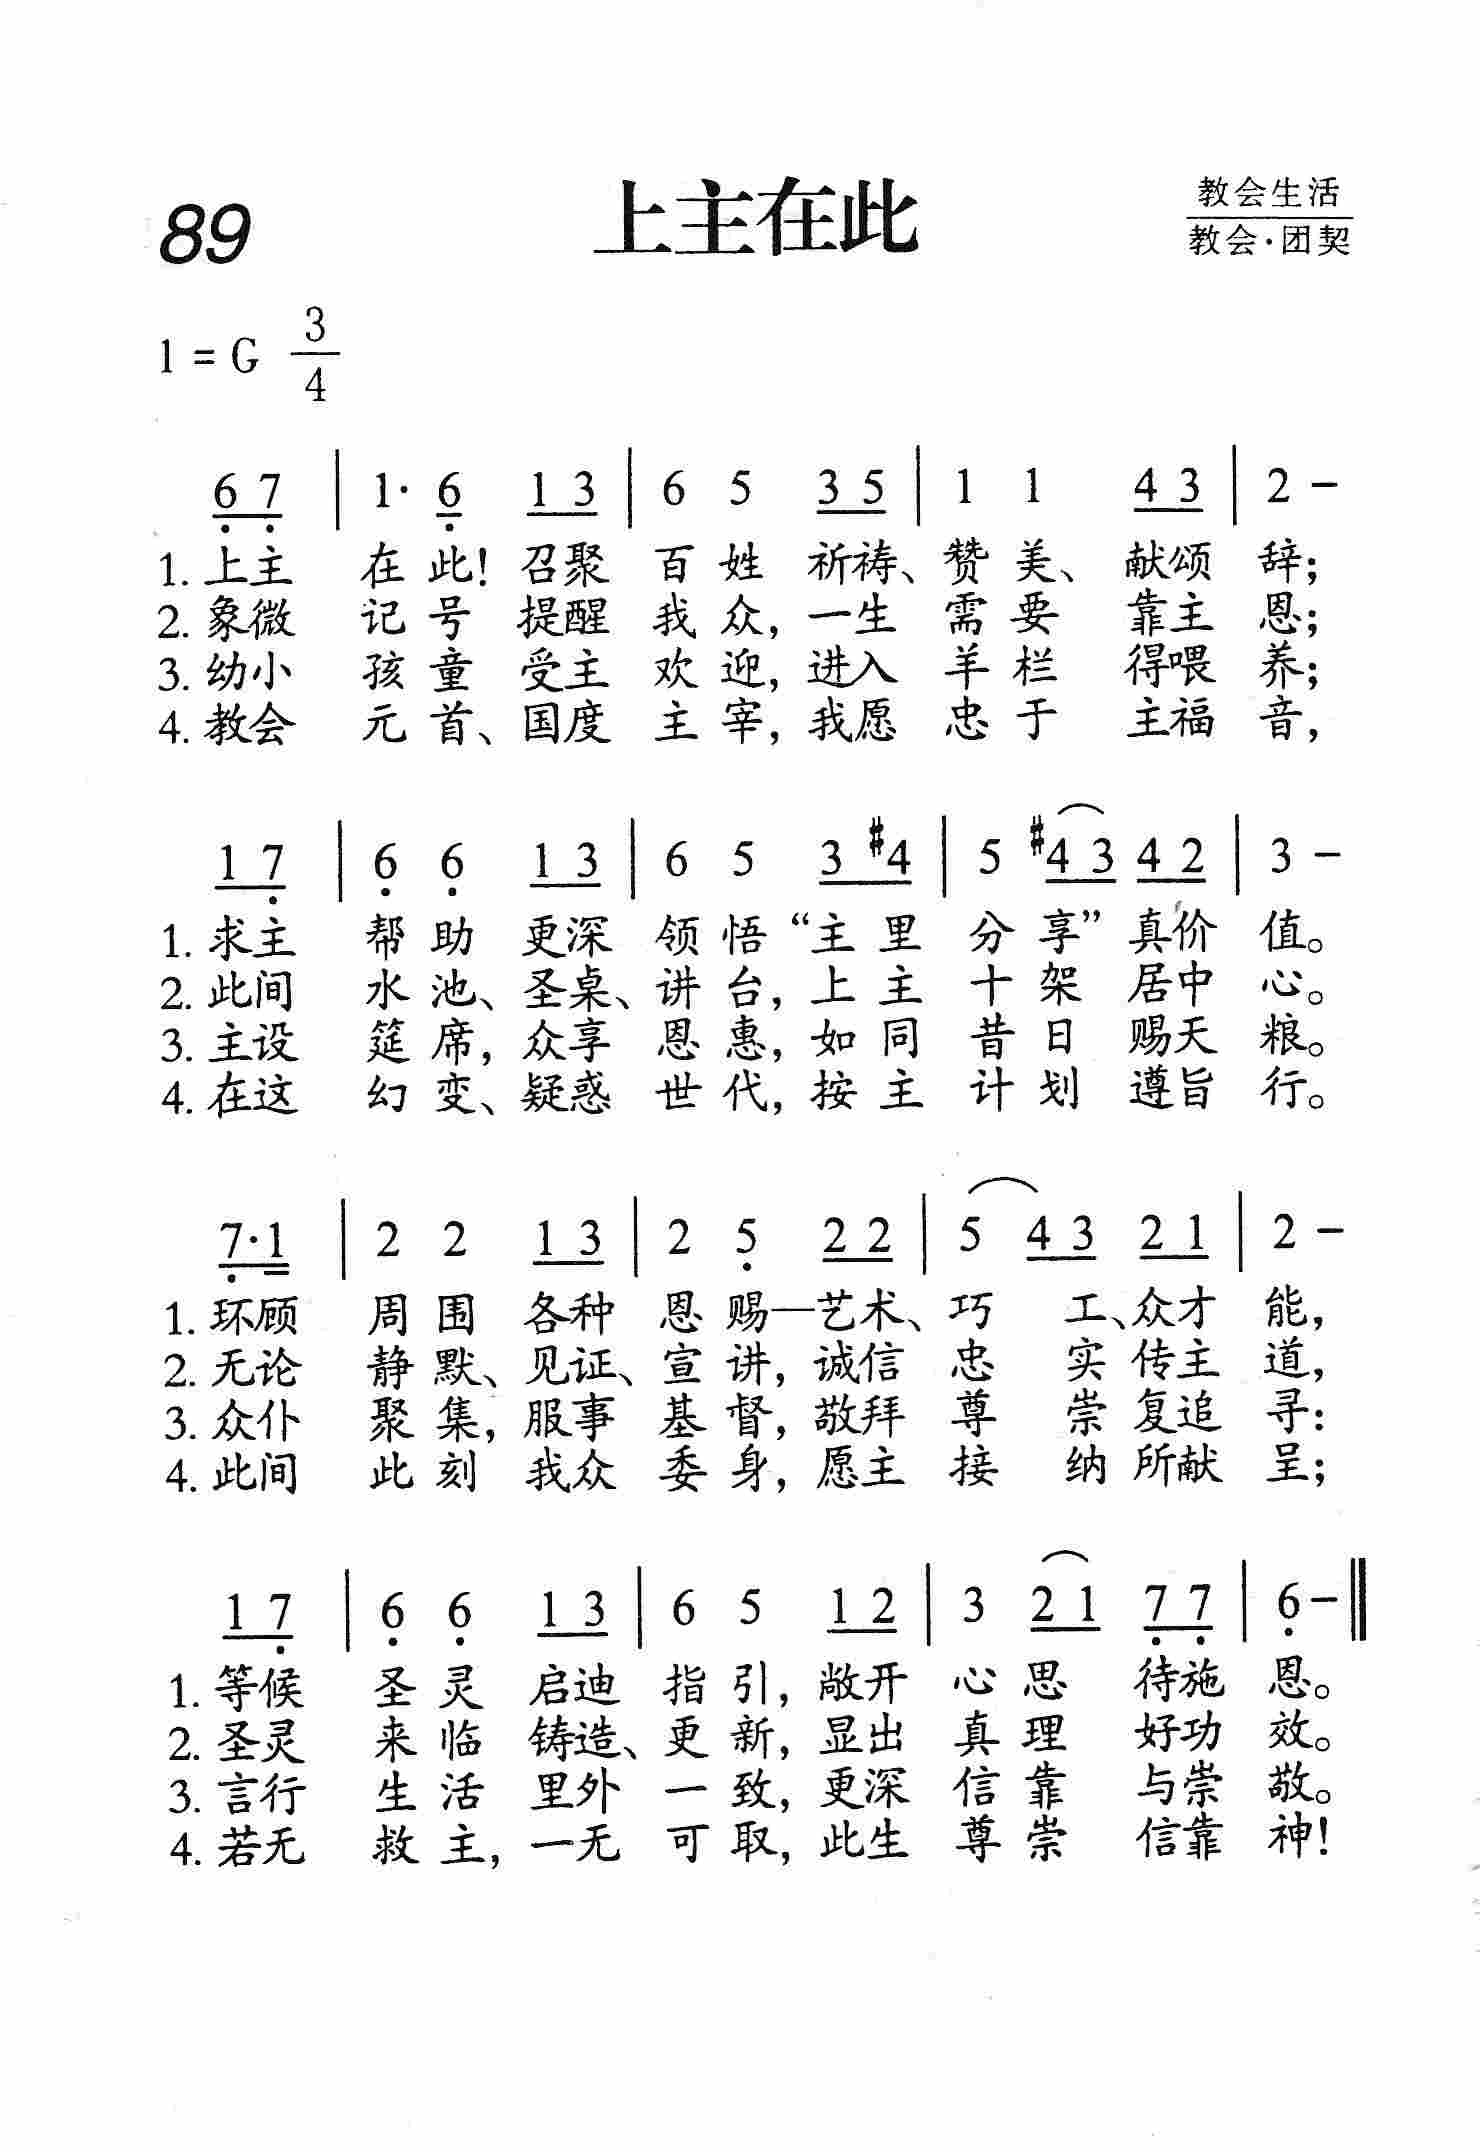 89 上主在此 教会生活
教会·团契
1 = G 3/4
6 7 | 1· 6 1 3 | 6 5 3 5 | 1 1 4 3 | 2 -
1. 上主 在 此！召聚 百 姓 祈祷、赞 美、 献颂 辞；
2. 象微 记 号 提醒 我 众，一生 需 要 靠主 恩；
3. 幼小 孩 童 受主 欢 迎，进入 羊 栏 得喂 养；
4. 教会 元 首、国度 主 宰，我愿 忠 于 主福 音，
1 7 | 6 6 1 3 | 6 5 3 #4 | 5 #4 3 4 2 | 3 -
1. 求主 帮 助 更深 领 悟“主 里 分 享”真价 值。
2. 此间 水 池、圣桌、讲 台，上 主 十 架 居中 心。
3. 主设 筵 席，众享 恩 惠，如 同 昔 日 赐天 粮。
4. 在这 幻 变、疑惑 世 代，按 主 计 划 遵旨 行。
7·1 | 2 2 1 3 | 2 5 2 2 | 5 4 3 2 1 | 2 -
1. 环顾 周 围 各种 恩 赐—艺术、巧 工、众才 能，
2. 无论 静 默、见证、宣 讲，诚信 忠 实 传主 道，
3. 众仆 聚 集，服事 基 督，敬拜 尊 崇 复追 寻：
4. 此间 此 刻 我众 委 身，愿主 接 纳 所献 呈；
1 7 | 6 6 1 3 | 6 5 1 2 | 3 2 1 7 7 | 6 -
1. 等候 圣 灵 启迪 指 引，敞开 心 思 待施 恩。
2. 圣灵 来 临 铸造、更 新，显出 真 理 好功 效。
3. 言行 生 活 里外 一 致，更深 信 靠 与崇 敬。
4. 若无 救 主，一无 可 取，此生 尊 崇 信靠 神！